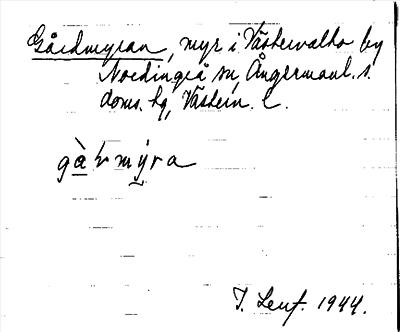 Gårdmyran, myr i Västervalto by
Nordingrå sn, Ångermanl. s.
doms. hg, Västern. l.
gàrmy̌ra
J. Leuf. 1944.